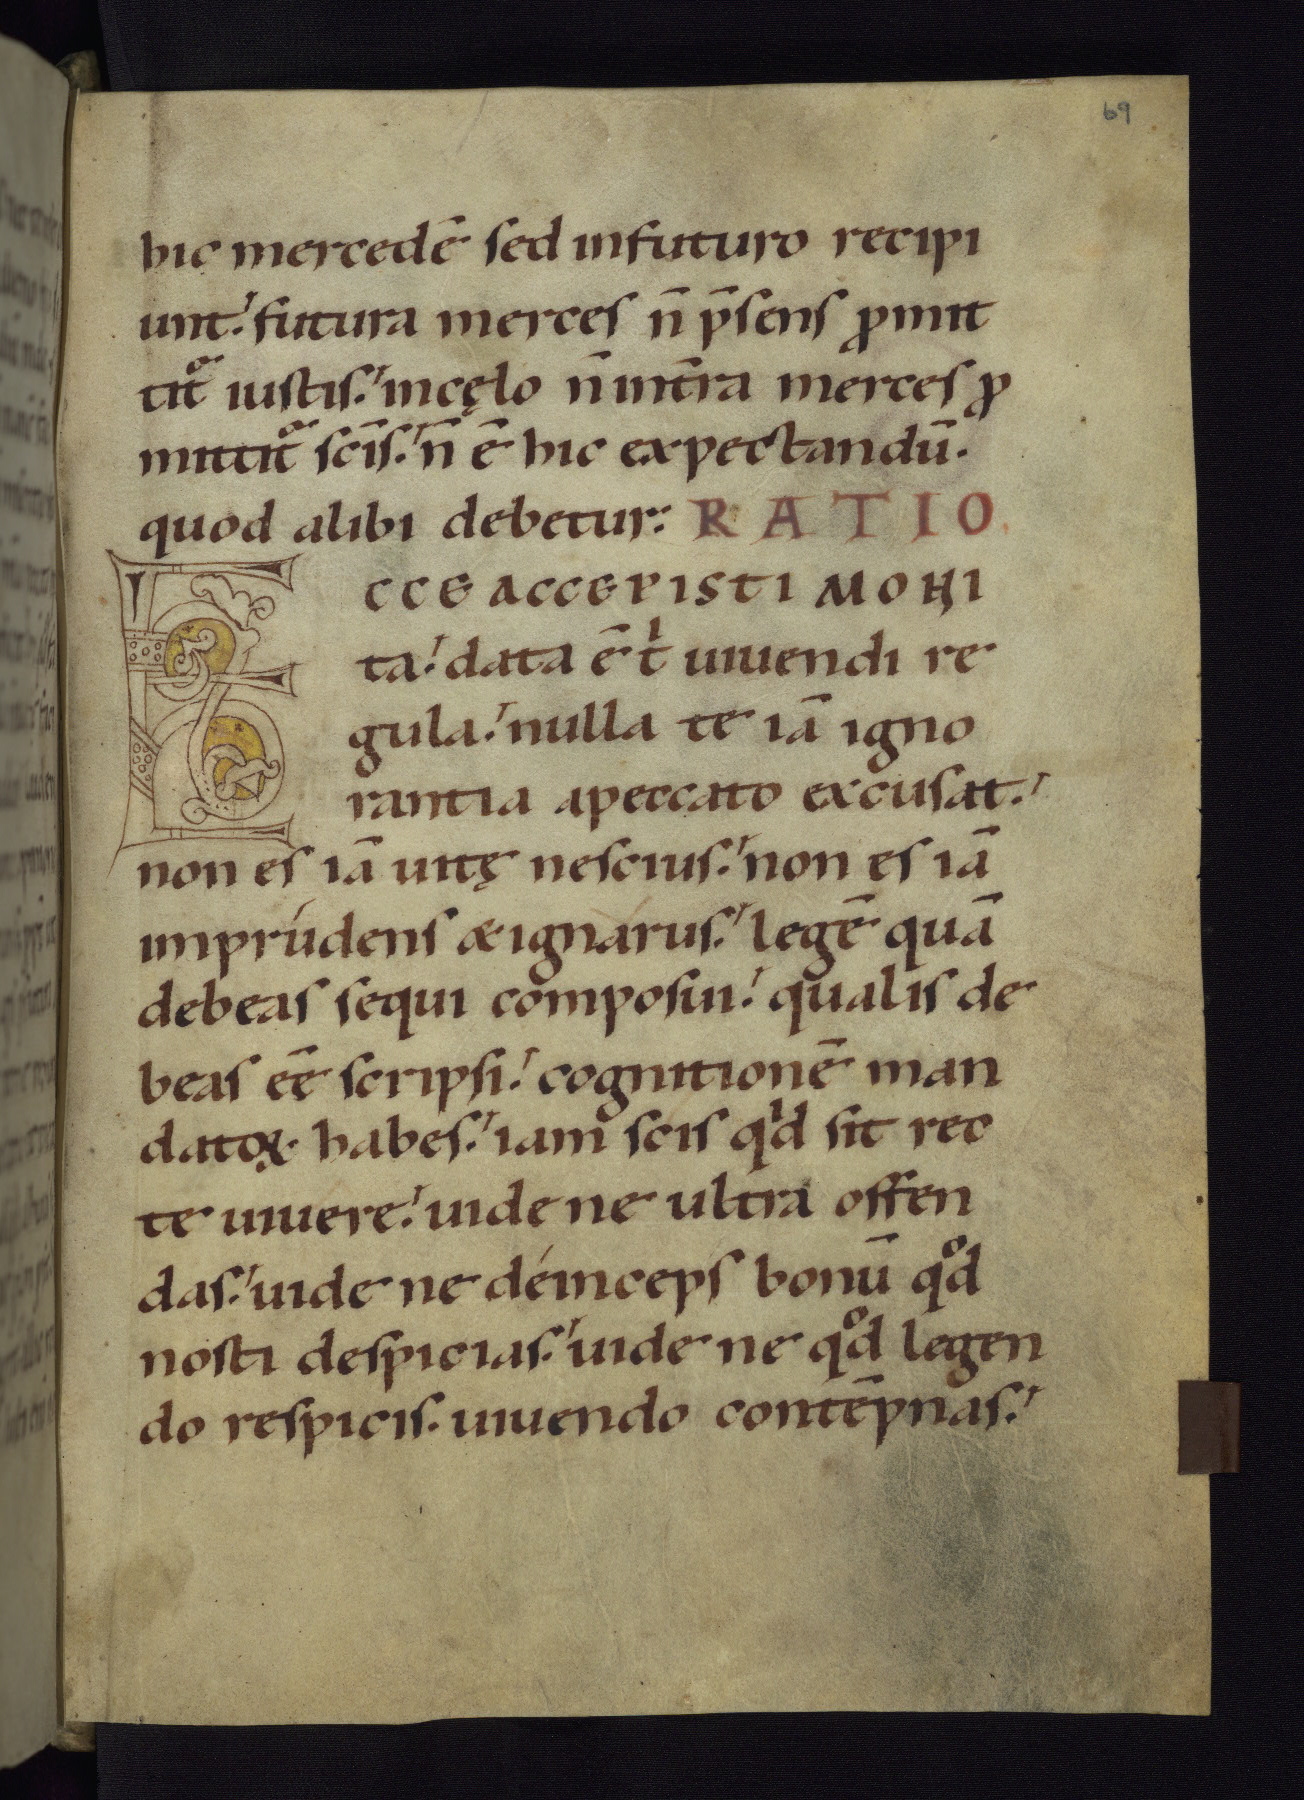 69
hic mercedē sed infuturo recipi
unt. futura merces n̄ p̄sens ꝓmit
tit᷑ iustis. incęlo n̄ int̄ra merces ꝓ
mittit᷑ sc̄is. n̄ ē hic expectandū.
quod alibi debetur: RATIO
ECCE ACCEPISTI MONI
ta. data ē tͥ uiuendi re
gula. nulla te iā igno
rantia apeccato excusat.
non es iā uitę nescius. non es iā
imprúdens & ignárus. legē quā
debeas sequi composui. qualis de
beas eē scripsi. cognitionē man
datoꝝ habes. iam scis qͥd sit rec
te uiuere. uide ne ultra offen
das. uide ne déinceps bonū qͦd
nosti despicias. uide ne qͦd legen
do respicis. uiuendo contēpnas.